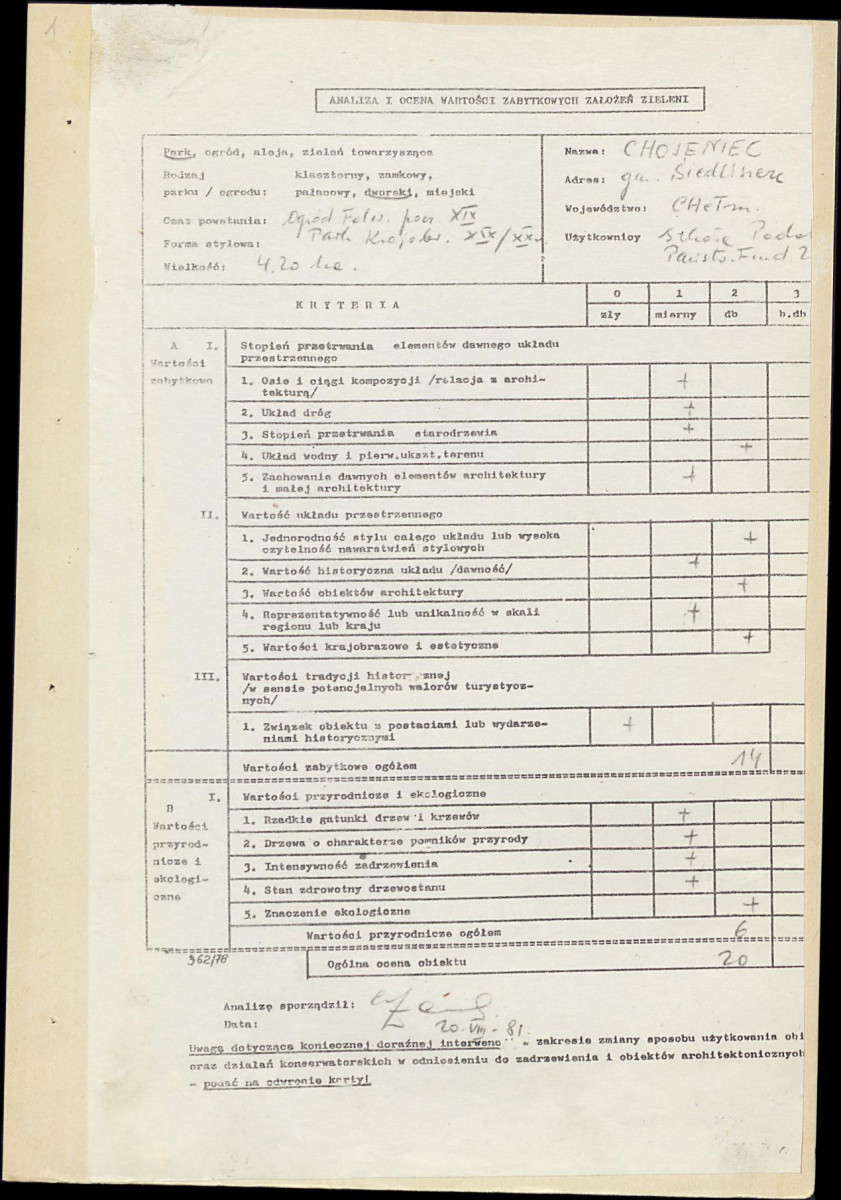 1
ANALIZA I OCENA WARTOŚCI ZABYTKOWYCH ZAŁOŻEŃ ZIELENI
Park, ogród, aleja, zieleń towarzysząca
Rodzaj klasztorny, zamkowy,
parku / ogrodu: pałacowy, dworski, miejski
Czas powstania: Ogród Folw. pocz. XIX
Forma stylowa: Park Krajobr. XIX/XX
Wielkość: 4,20 ha.
Nazwa: CHOJENIEC
Adres: gm. Siedliszcze
Województwo: CHEŁM.
Użytkownicy Szkoła Podst
Państw. Fund. Z
KRYTERIA
0 1 2 3
zły mierny db b.db
A I. Stopień przetrwania elementów dawnego układu
Wartości przestrzennego
zabytkowe
1. Osie i ciągi kompozycji /relacja z archi- +
tekturą/
2. Układ dróg +
3. Stopień przetrwania starodrzewia +
4. Układ wodny i pierw.ukszt.terenu +
5. Zachowanie dawnych elementów architektury +
i małej architektury
II. Wartość układu przestrzennego
1. Jednorodność stylu całego układu lub wysoka +
czytelność nawarstwień stylowych
2. Wartość historyczna układu /dawność/ +
3. Wartość obiektów architektury +
4. Reprezentatywność lub unikalność w skali +
regionu lub kraju
5. Wartości krajobrazowe i estetyczne +
III. Wartości tradycji histor znej
/w sensie potencjalnych walorów turystycz-
nych/
1. Związek obiektu z postaciami lub wydarze- +
niami historycznymi
Wartości zabytkowe ogółem 14
B I. Wartości przyrodnicze i ekologiczne
Wartości
przyrod-
nicze i
ekologi-
czne
1. Rzadkie gatunki drzew i krzewów +
2. Drzewa o charakterze pomników przyrody +
3. Intensywność zadrzewienia +
4. Stan zdrowotny drzewostanu +
5. Znaczenie ekologiczne +
Wartości przyrodnicze ogółem 6
362/78 Ogólna ocena obiektu 20
Analizę sporządził:
Data: 20.VIII-81.
Uwagę dotyczącą koniecznej doraźnej interwenc w zakresie zmiany sposobu użytkowania obi
oraz działań konserwatorskich w odniesieniu do zadrzewienia i obiektów architektonicznych
- podać na odwrocie karty!